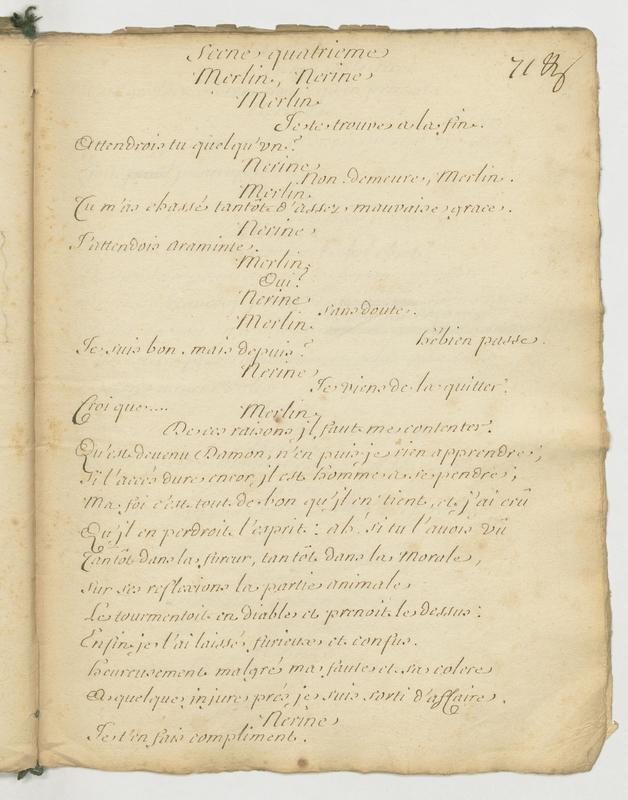 Scene quatrieme
71
Merlin, Nerine
Merlin
Je te trouve a la fin.
Attendrois tu quelqu'vn?
Nerine
Non. demeure, Merlin.
Merlin
Tu m'as chassé tantôt d'assez mauvaise grace.
Nerine
J'attendois araminte.
Merlin
Oui?
Nerine
sans doute.
Merlin
hébien passe.
Je suis bon. mais depuis?
Nerine
Je viens de la quitter.
Croi que....
Merlin
De ces raisons jl faut me contenter.
Qu'est devenu Damon, n'en puis je rien apprendre;
Si l'accés dure encor, jl est homme a se pendre;
Ma foi c'est tout de bon qu'jl en tient, et j'ai crû
Qu'jl en perdroit l'esprit: ah! si tu l'avois vû
Tantôt dans la fureur, tantôt dans la Morale,
sur ses reflexions la partie animale
Le tourmentoit en diable et prenoit le dessus:
Enfin je l'ai laissé furieux et confus.
heureusement malgré ma faute et sa colere
A quelque injure prés je suis sorti d'affaire.
Nerine
Je t'en fais compliment.